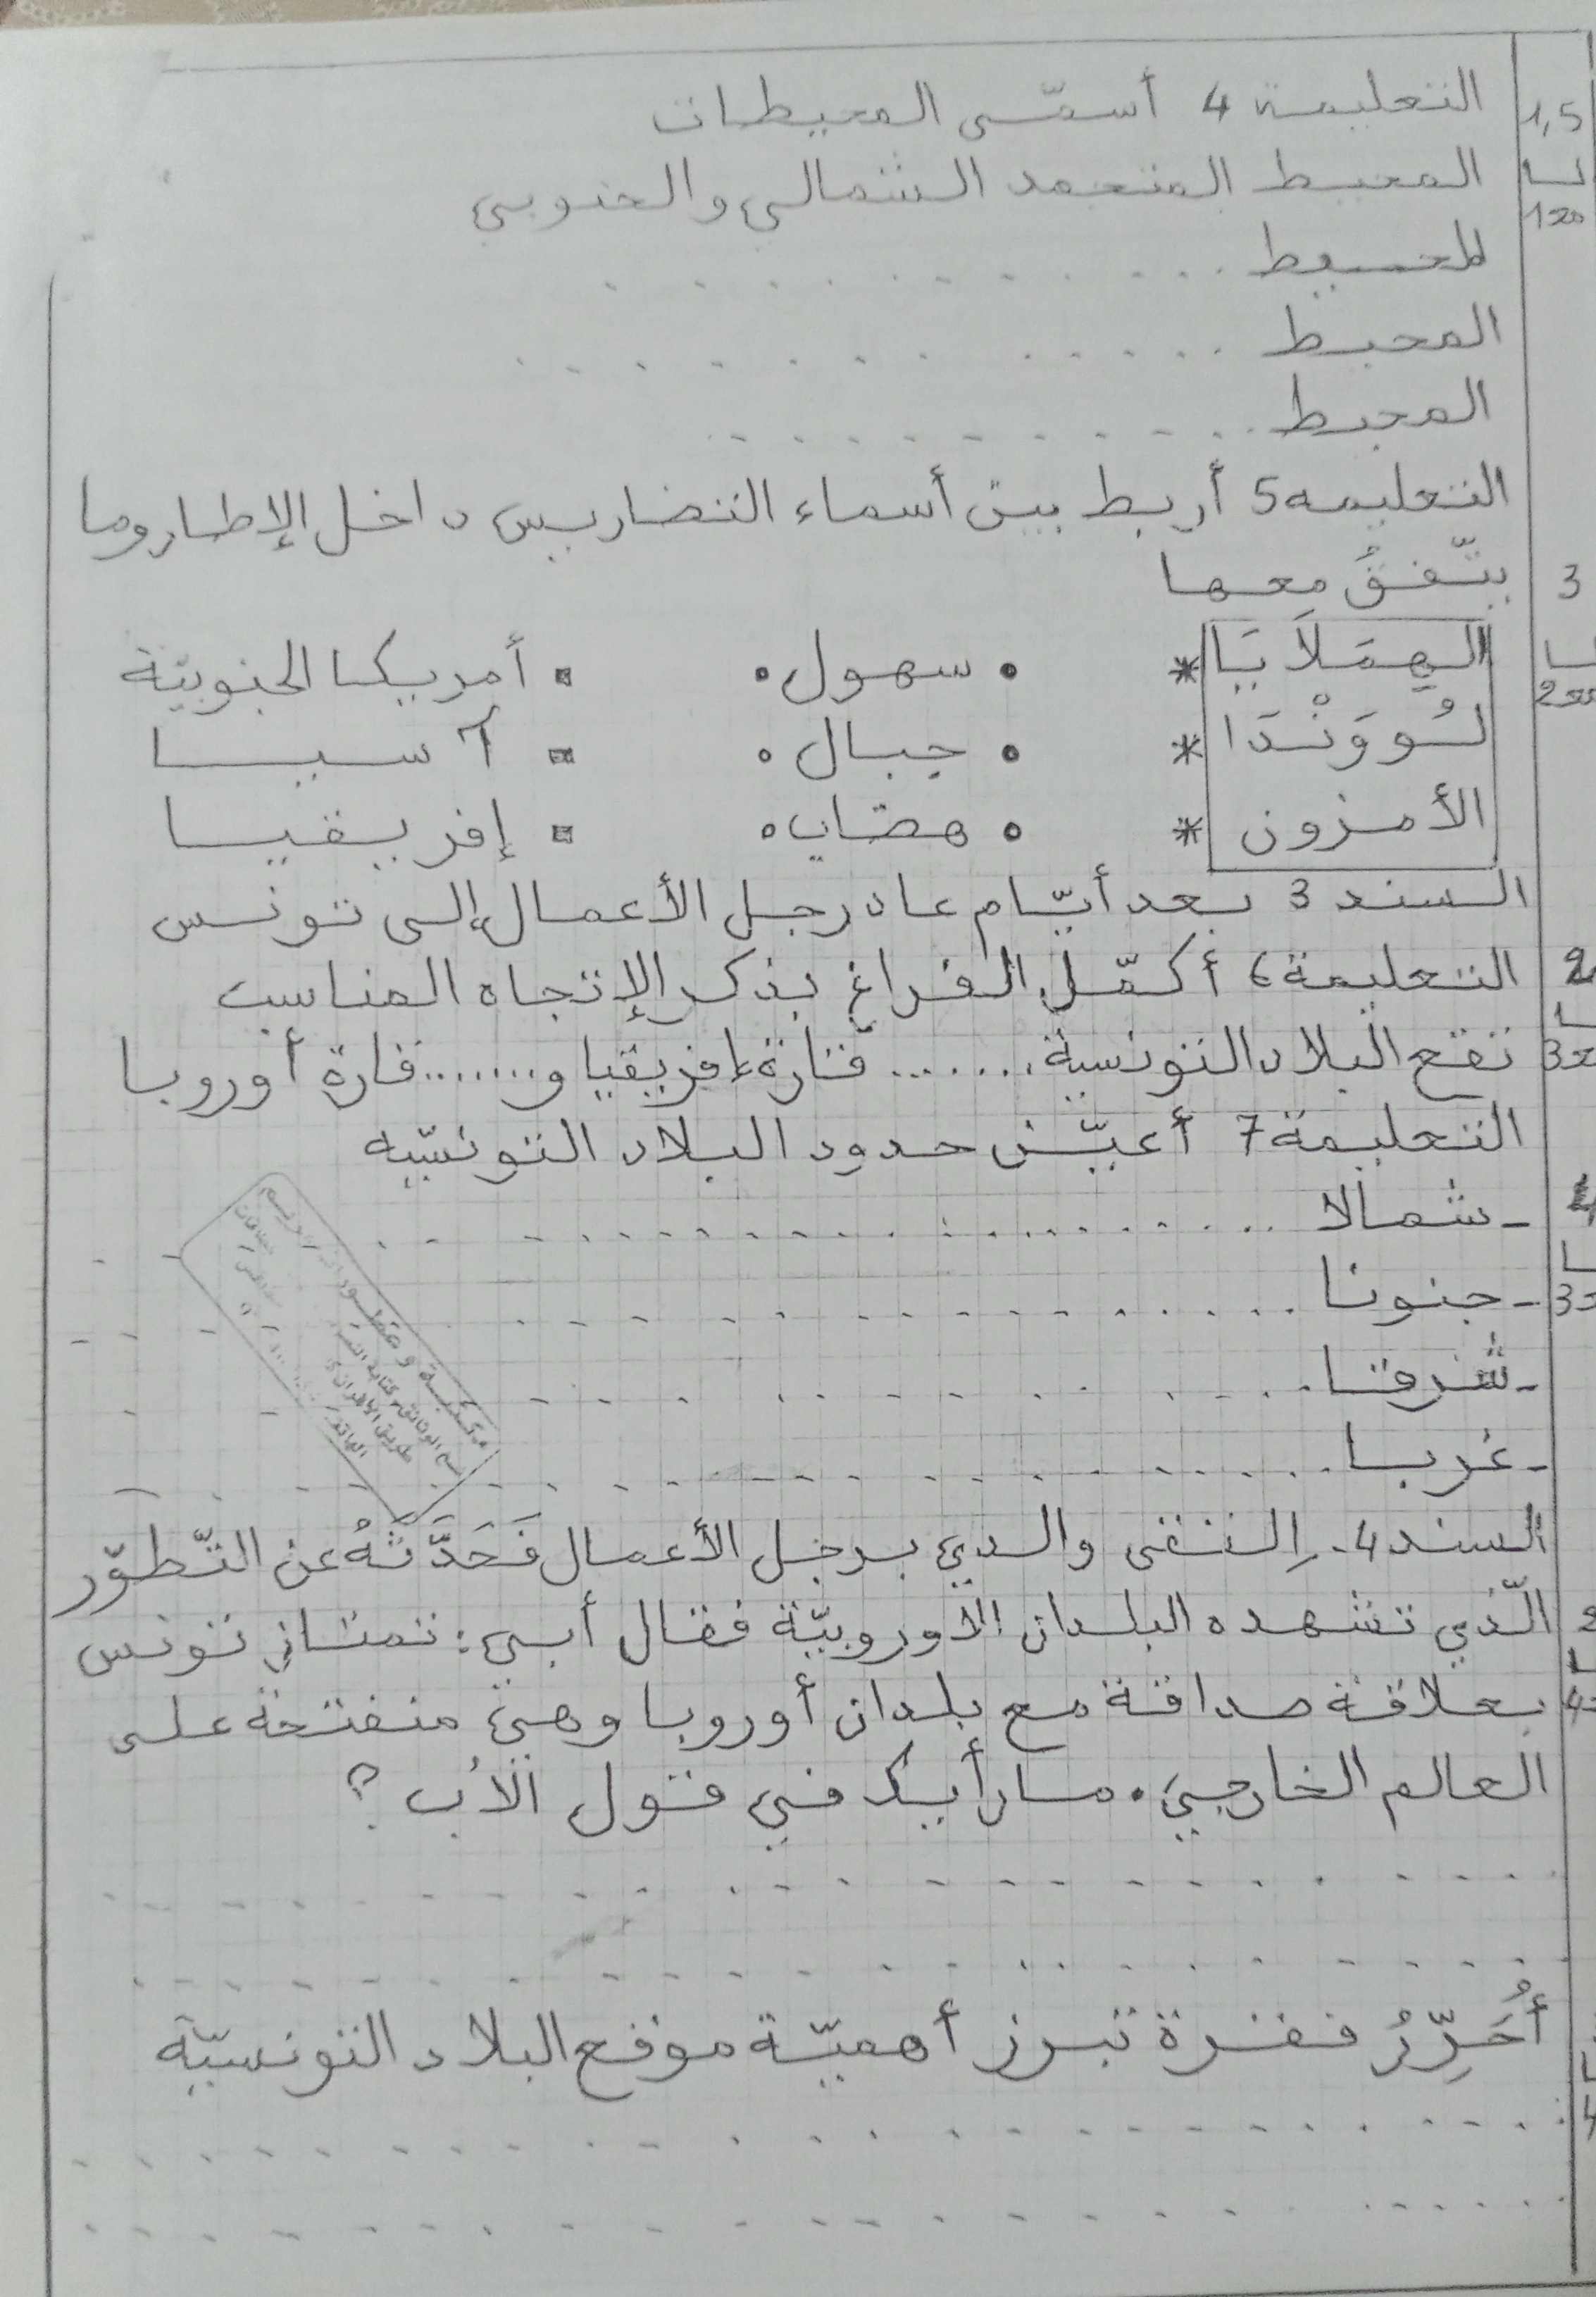 التعليمة 4 أسمّي المحيطات
المحيط المتجمد الشمالي والجنوبي
المحيط ............
المحيط ............
المحيط ............
التعليمة 5 أربط بين أسماء التضاريس داخل الإطار وما
يتّفقُ معها
الهِمَلاَيَا * • سهول • ▪ أمريكا الجنوبيّة
لُووَنْدَا * • جبال • ▪ آسيا
الأمزون * • هضاب • ▪ إفريقيا
السند 3 بعد أيّام عاد رجل الأعمال إلى تونس
التعليمة 6 أكمّل الفراغ بذكر الإتجاه المناسب
تقع البلاد التونسية ....... قارة إفريقيا و....... قارة أوروبا
التعليمة 7 أعيّن حدود البلاد التونسّيه
- شمالا ............
- جنوبا ............
- شرقا ............
- غربا ............
السند 4. إلتقى والدي برجل الأعمال فَحَدَّثَهُ عن التّطوّر
الّذي تشهده البلدان الأوروبيّة فقال أبي: تمتاز تونس
بعلاقة صداقة مع بلدان أوروبا وهي منفتحة على
العالم الخارجي. ما رأيك في قول الأب ؟
أُحَرِّرُ فقرة تبرز أهميّة موقع البلاد التونسيّة
1,5
3
2
4